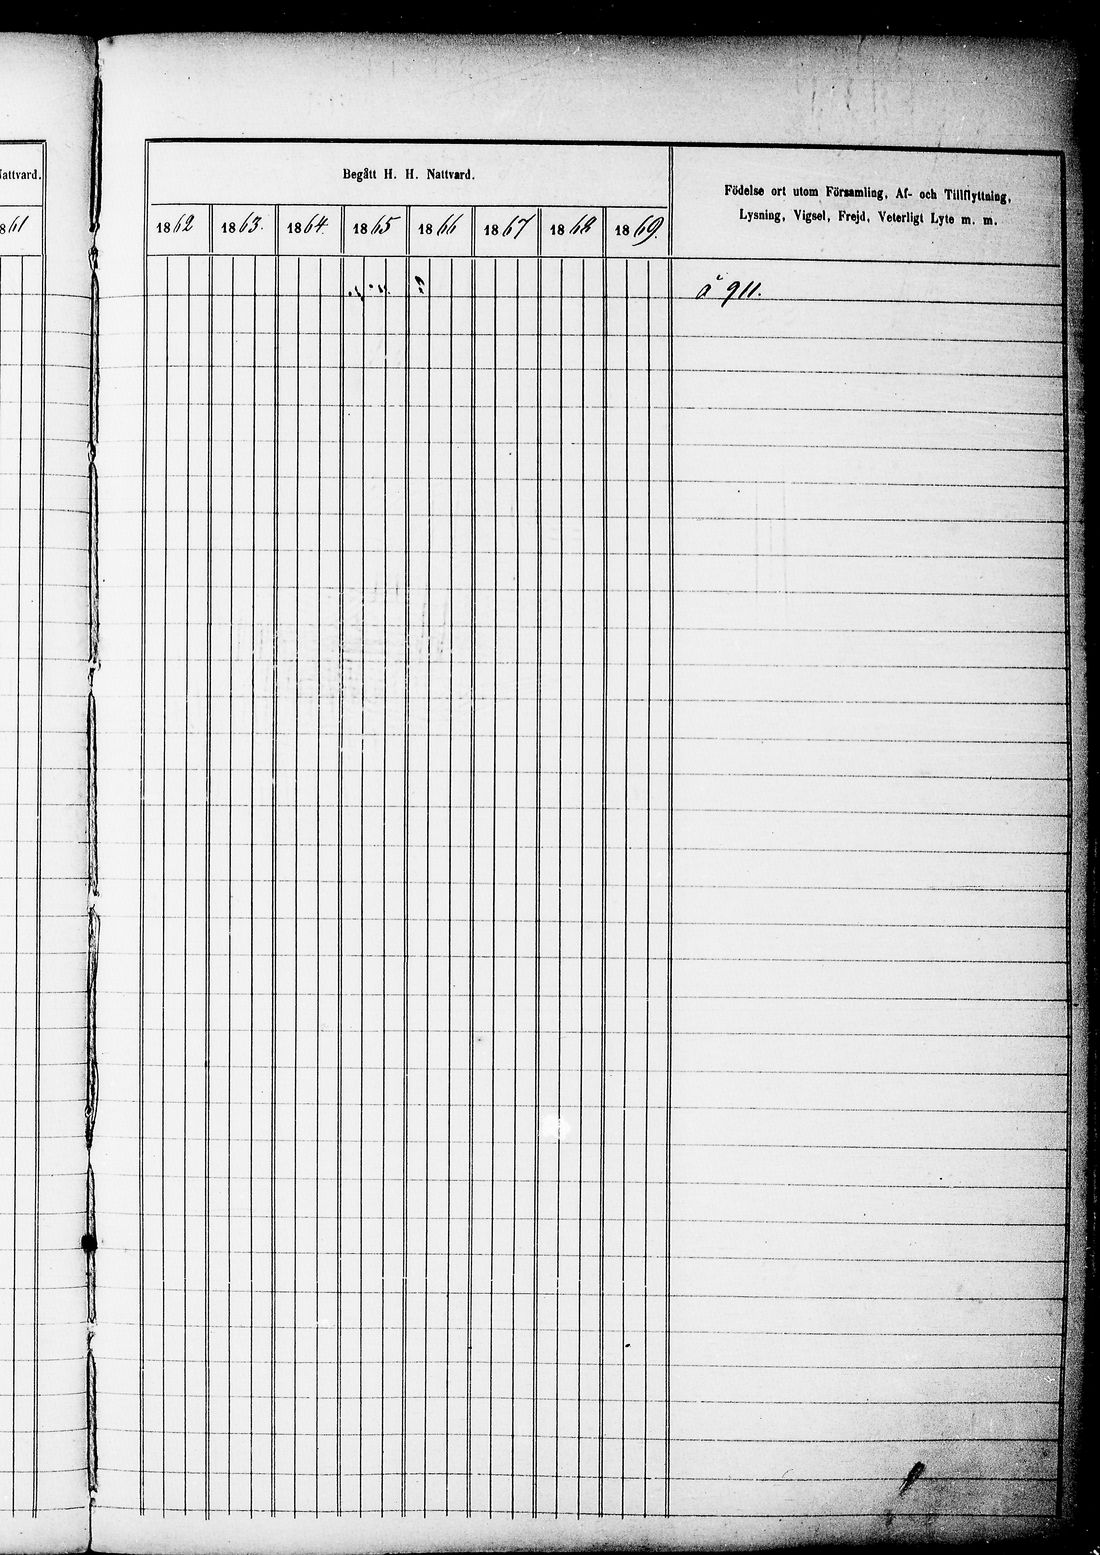 Nattvard.
861
Begått H. H. Nattvard.
Födelse ort utom Församling, Af- och Tillflyttning,
Lysning, Vigsel, Frejd, Veterligt Lyte m. m.
1862 1863. 1864. 1865 1866 1867 1868 1869.
å 911.